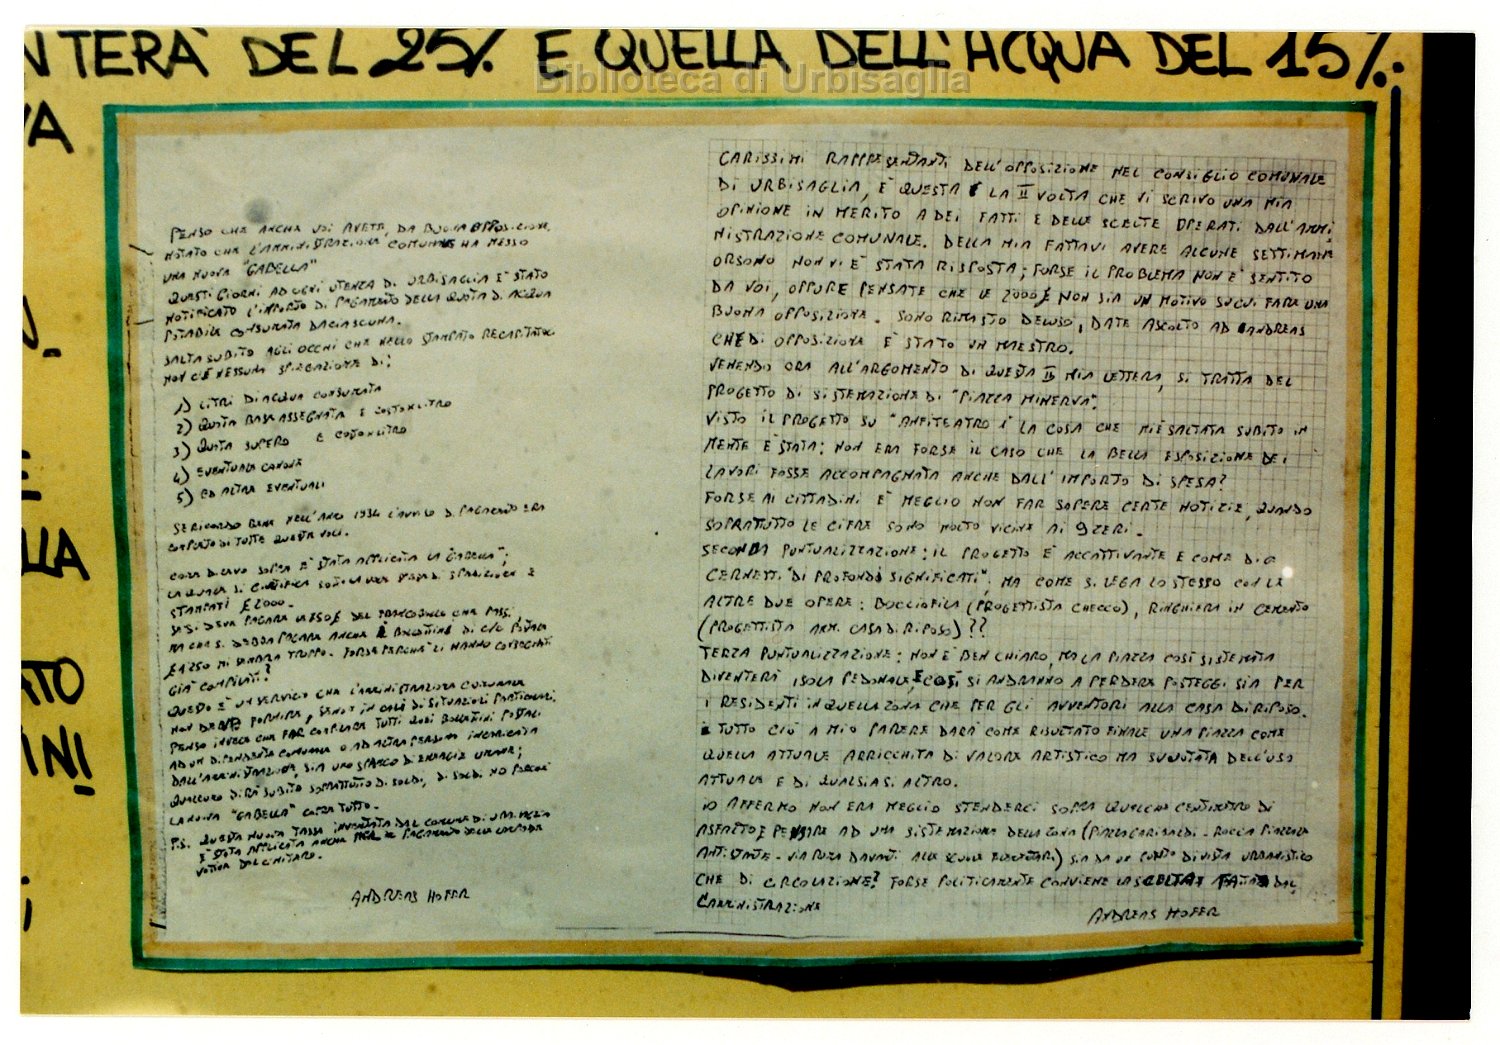 NTERÀ DEL 25% E QUELLA DELL'ACQUA DEL 15%.
Biblioteca di Urbisaglia
VA
LLA
ATO
INI!
PENSO CHE ANCHE VOI AVETE, DA BUONA OPPOSIZIONE,
NOTATO CHE L'AMMINISTRAZIONE COMUNALE HA MESSO
UNA NUOVA "GABELLA"
QUESTI GIORNI AD OGNI UTENZA DI URBISAGLIA E' STATO
NOTIFICATO L'IMPORTO DI PAGAMENTO DELLA QUOTA D'ACQUA
POTABILE CONSUMATA DA CIASCUNA.
SALTA SUBITO AGLI OCCHI CHE NELLO STAMPATO RECAPITATOCI
NON C'È NESSUNA SPIEGAZIONE DI:
1) LITRI DI ACQUA CONSUMATA
2) QUOTA BASE ASSEGNATA E COSTO X LITRO
3) QUOTA SUPERO E COSTO X LITRO
4) EVENTUALE CANONE
5) ED ALTRE EVENTUALI
SE RICORDO BENE NELL'ANNO 1994 L'AVVISO DI PAGAMENTO ERA
COMPLETO DI TUTTE QUESTE VOCI.
COME DICEVO SOPRA E' STATA APPLICATA LA "GABELLA";
LA QUALE SI
STAMPATI £ 2000.
SE SI DEVE PAGARE LE 750 £ DEL FRANCOBOLLO CHE PASSI,
MA CHE SI DEBBA PAGARE ANCHE IL BOLLETTINO DI C/C POSTALE
£ 1250 MI SEMBRA TROPPO. FORSE PERCHÈ LI HANNO CONSEGNATI
GIÀ COMPILATI?
QUESTO È UN SERVIZIO CHE L'AMMINISTRAZIONE COMUNALE
NON DEVE FORNIRE, SENON IN CASI DI SITUAZIONI PARTICOLARI.
PENSO INVECE CHE FAR COMPILARE TUTTI QUEI BOLLETTINI POSTALI
AD UN DIPENDENTE COMUNALE O AD ALTRA PERSONA INCARICATA
DALL'AMMINISTRAZIONE, SIA UNO SPRECO DI ENERGIE UMANE;
QUALCUNO DIRÀ SUBITO SOPRATTUTTO DI SOLDI, DI SOLDI NO PERCHÈ
LA NUOVA "GABELLA" COPRE TUTTO.
P.S. QUESTA NUOVA TASSA INVENTATA DAL COMUNE DI URBISAGLIA
E' STATA APPLICATA ANCHE PER IL PAGAMENTO DELLA LAMPADA
VOTIVA DEL CIMITERO.
ANDREAS HOFER
CARISSIMI RAPPRESENTANTI DELL'OPPOSIZIONE NEL CONSIGLIO COMUNALE
DI URBISAGLIA, E' QUESTA LA II VOLTA CHE VI SCRIVO UNA MIA
OPINIONE IN MERITO A DEI FATTI E DELLE SCELTE OPERATI DALL'AMMI
NISTRAZIONE COMUNALE. DELLA MIA FATTAVI AVERE ALCUNE SETTIMANE
ORSONO NON VI E' STATA RISPOSTA; FORSE IL PROBLEMA NON E' SENTITO
DA VOI, OPPURE PENSATE CHE LE 2000 £ NON SIA UN MOTIVO SU CUI FARE UNA
BUONA OPPOSIZIONE. SONO RIMASTO DELUSO, DATE ASCOLTO AD ANDREAS
CHE DI OPPOSIZIONE E' STATO UN MAESTRO.
VENENDO ORA ALL'ARGOMENTO DI QUESTA II MIA LETTERA, SI TRATTA DEL
PROGETTO DI SISTEMAZIONE DI "PIAZZA MINERVA".
VISTO IL PROGETTO SU "ANFITEATRO 1" LA COSA CHE MI È SALTATA SUBITO IN
MENTE E' STATA: NON ERA FORSE IL CASO CHE LA BELLA ESPOSIZIONE DEI
LAVORI FOSSE ACCOMPAGNATA ANCHE DALL'IMPORTO DI SPESA?
FORSE AI CITTADINI E' MEGLIO NON FAR SAPERE CERTE NOTIZIE, QUANDO
SOPRATTUTTO LE CIFRE SONO MOLTO VICINE AI 9 ZERI.
SECONDA PUNTUALIZZAZIONE: IL PROGETTO E' ACCATTIVANTE E COME DICE
CERNETTI "DI PROFONDI SIGNIFICATI", MA COME SI LEGA LO STESSO CON LE
ALTRE DUE OPERE: BOCCIOFILA (PROGETTISTA CHECCO), RINGHIERA IN CEMENTO
(PROGETTISTA AMM. CASA DI RIPOSO)??
TERZA PUNTUALIZZAZIONE: NON E' BEN CHIARO, MA LA PIAZZA COSÌ SISTEMATA
DIVENTERÀ ISOLA PEDONALE, E COSÌ SI ANDRANNO A PERDERE POSTEGGI SIA PER
I RESIDENTI IN QUELLA ZONA CHE PER GLI AVVENTORI ALLA CASA DI RIPOSO.
TUTTO CIÒ A MIO PARERE DARÀ COME RISULTATO FINALE UNA PIAZZA COME
QUELLA ATTUALE ARRICCHITA DI VALORE ARTISTICO MA SVUOTATA DELL'USO
ATTUALE E DI QUALSIASI ALTRO.
IO AFFERMO NON ERA MEGLIO STENDERCI SOPRA QUALCHE CENTIMETRO DI
ASFALTO E PENSARE AD UNA SISTEMAZIONE DELLA ZONA (PIAZZA GARIBALDI - ROCCA PIAZZALE
ANTISTANTE - VIA PIAZZA DAVANTI ALLE SCUOLE ELEMENTARI) SIA DA UN PUNTO DI VISTA URBANISTICO
CHE DI CIRCOLAZIONE? FORSE POLITICAMENTE CONVIENE LA SCELTA FATTA DAL
L'AMMINISTRAZIONE
ANDREAS HOFER